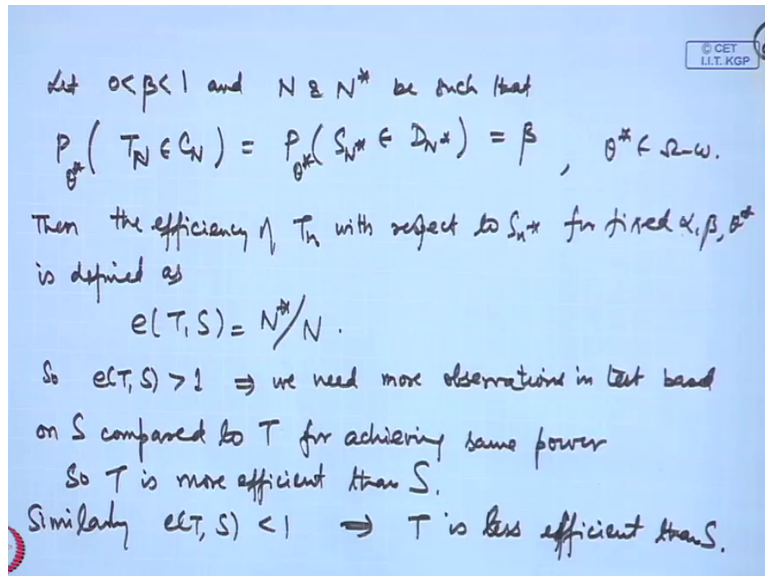 © CET
I.I.T. KGP
Let 0<β<1 and N & N* be such that
P_θ*( T_N ∈ C_N ) = P_θ*( S_N* ∈ D_N* ) = β , θ* ∈ Ω-ω.
Then the efficiency of T_n with respect to S_n* for fixed α, β, θ*
is defined as
e(T,S) = N*/N .
So e(T,S) > 1 ⇒ we need more observations in test based
on S compared to T for achieving same power
So T is more efficient than S.
Similarly e(T,S) < 1 ⇒ T is less efficient than S.